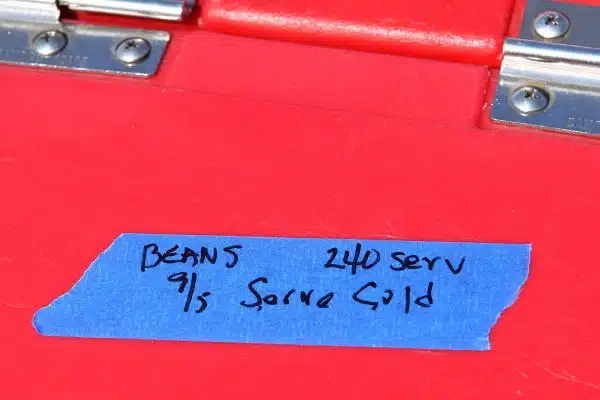 BEANS 240 serv
9/5 Serve Cold